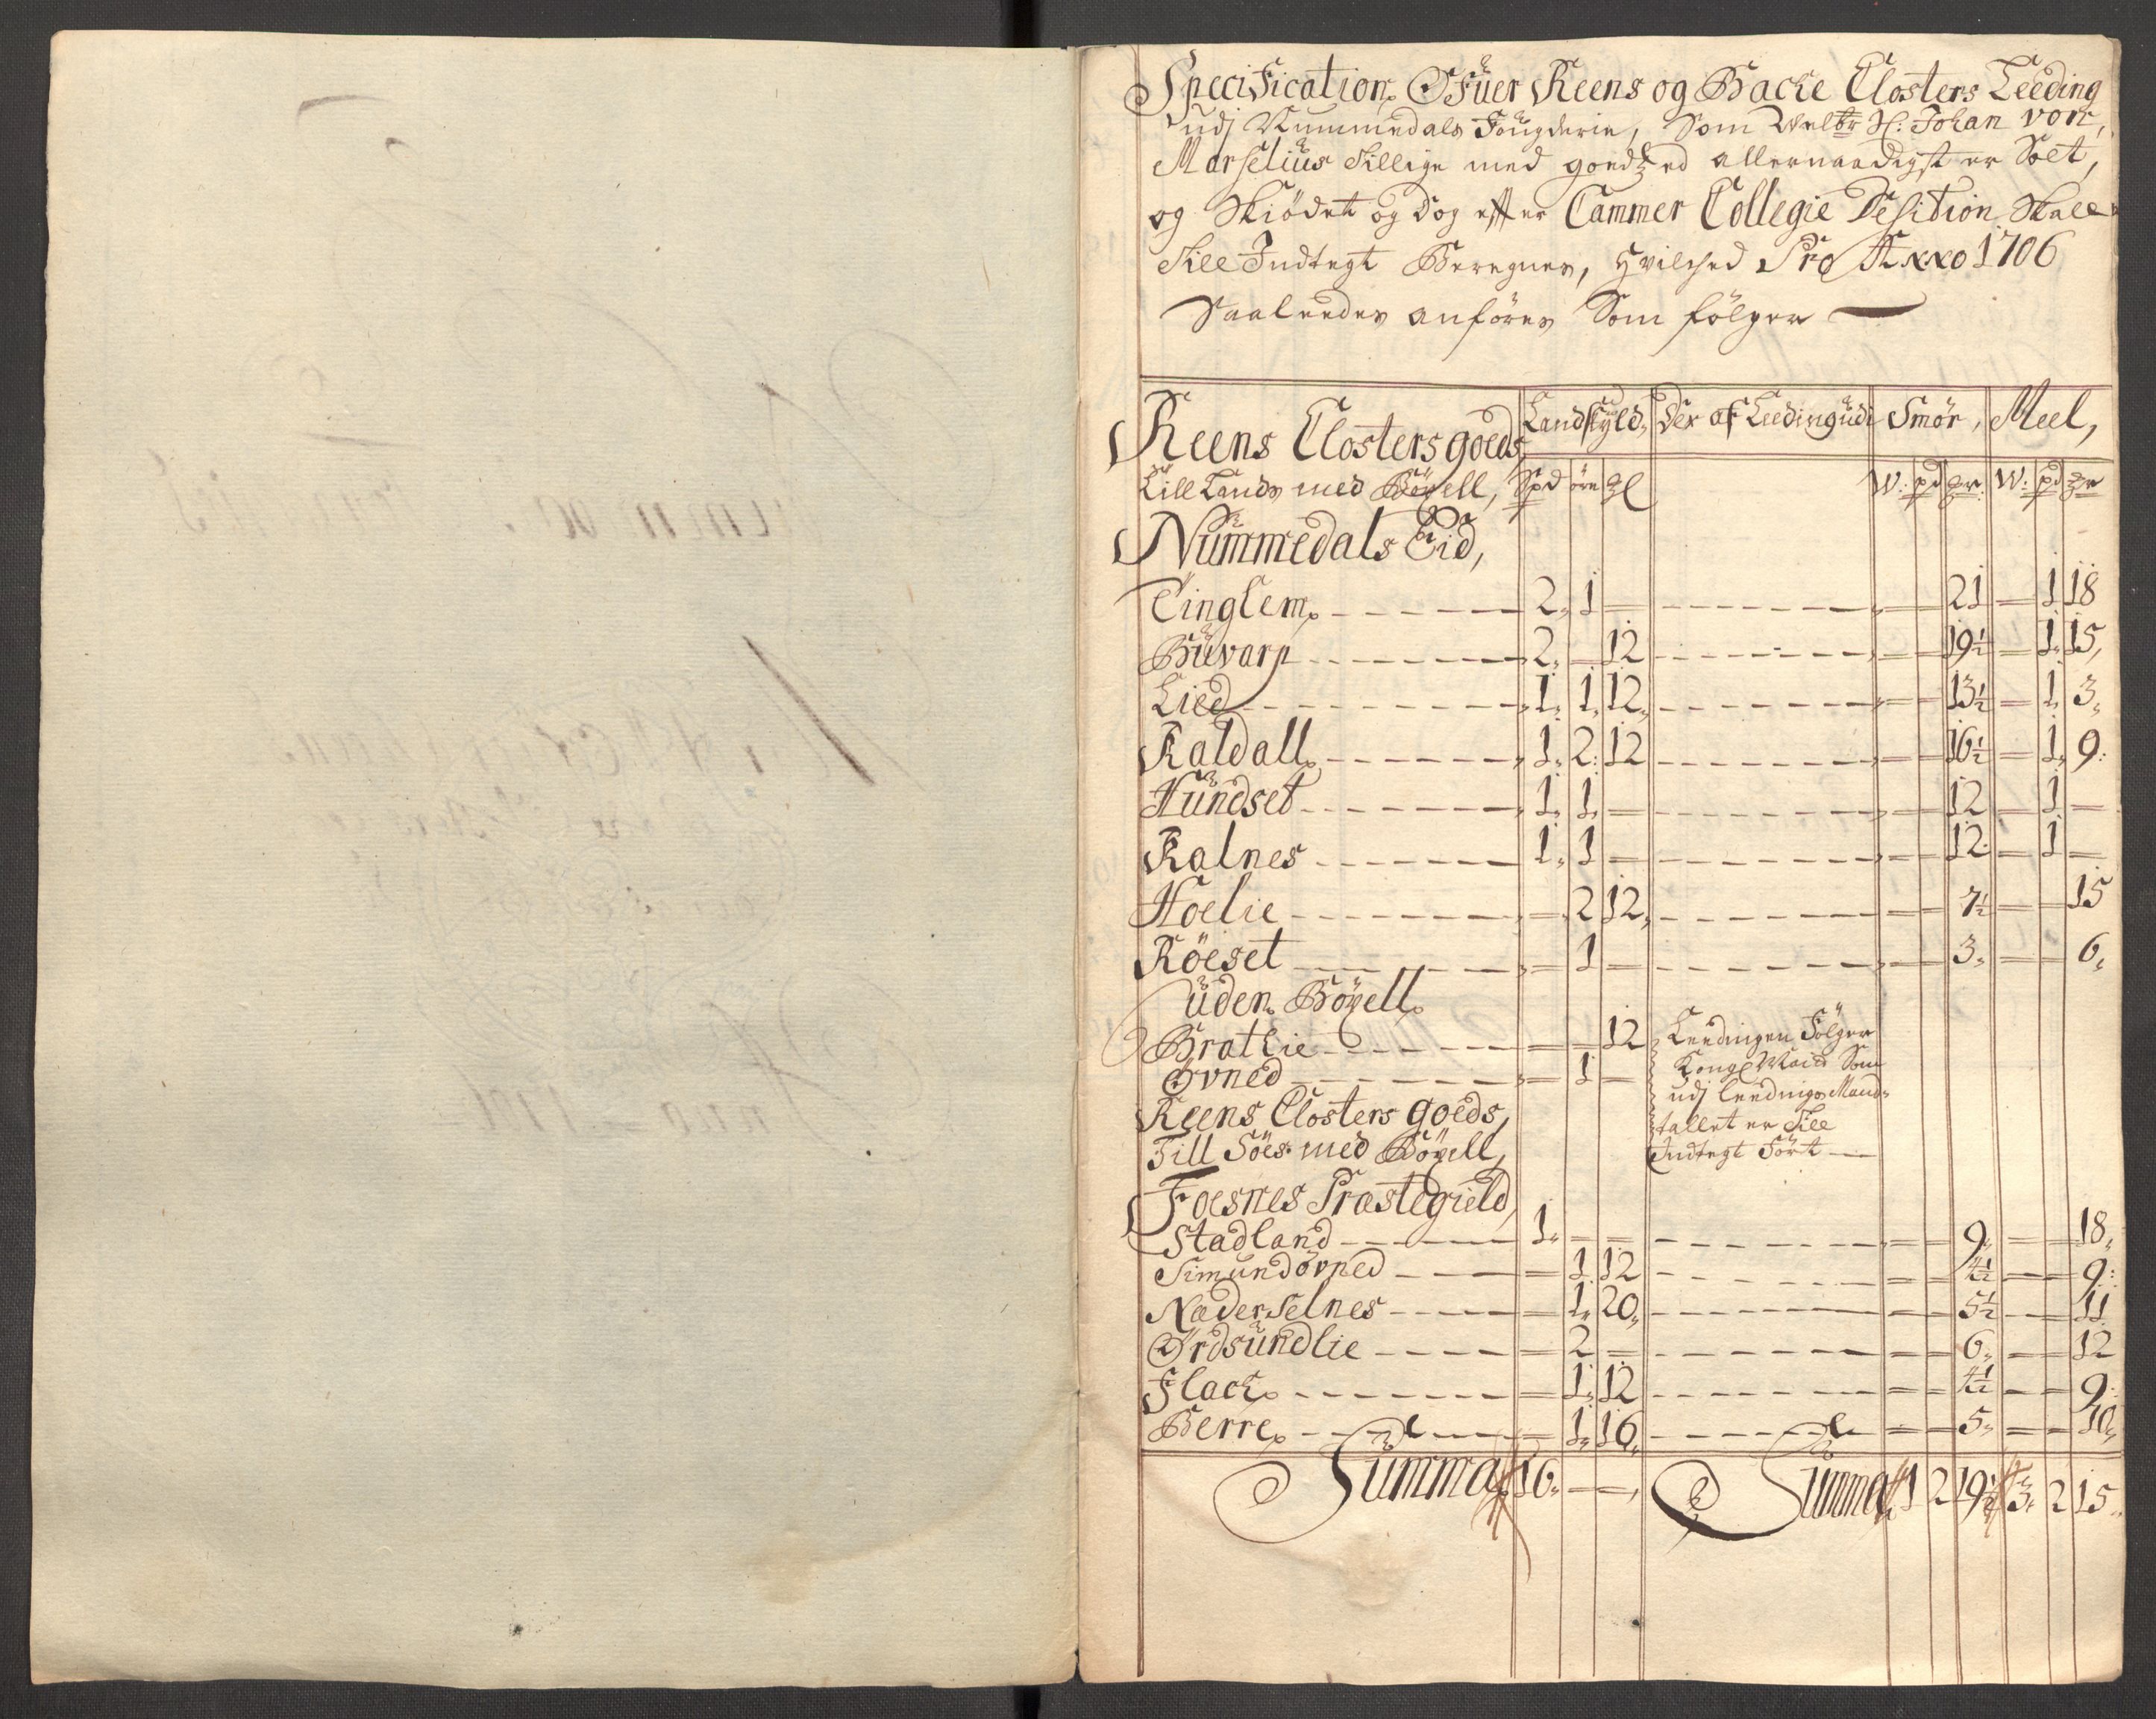 Specification Ofuer Reens og Backe Closters Leeding
udj Nummedals Fougderie, Som Welbr H: Johan von,
Marselius Tillige med goedtzed allernaadigst er Solt,
og Skiödet og dog efter Cammer Collegie Desition Skall
Till Indtegt Beregnes, hvilched Pro Anno 1706
Saaleedes anföres Som fölger
Reens Closters goeds, Landskyld, Der af Leeding udi Smör, Meel,
Till Lands med Böxell, Spd öre W: pd W: pd
Nummedals Eid,
Tinglem 2 1 — — — 21 — 1 18
Buvarp 2 — 12 — — 19½ — 1 15
Lied 1 1 12 — — 13½ — 1 3
Kaldall 1 2 12 — — 16½ — 1 9
Hundset 1 1 — — — 12 — 1 —
Kalnes 1 1 — — — 12 — 1 —
Hoelie — 2 12 — — 7½ — — 15
Röeset — 1 — — — 3 — — 6
uden Böxell
Bratlie — — 12 Leedingen Fölger
Øvned — 1 — Kongl Maid Som
udj leedings Mand-
Reens Closters goeds,
tallet er Till
Till Söes med Böxell,
Indtegt Fört
Foesnes Præstegield,
Stadland 1 — — — — 9 — — 18
Simundövned — 1 12 — — 4½ — — 9
Næderselnes — 1 20 — — 5½ — — 11
Ørdsundlie — 2 — — — 6 — — 12
Flack — 1 12 — — 4½ — — 9
Berre — 1 16 — — 5 — — 10
Summa 16 — — Summa 1 2 19½ 3 2 15